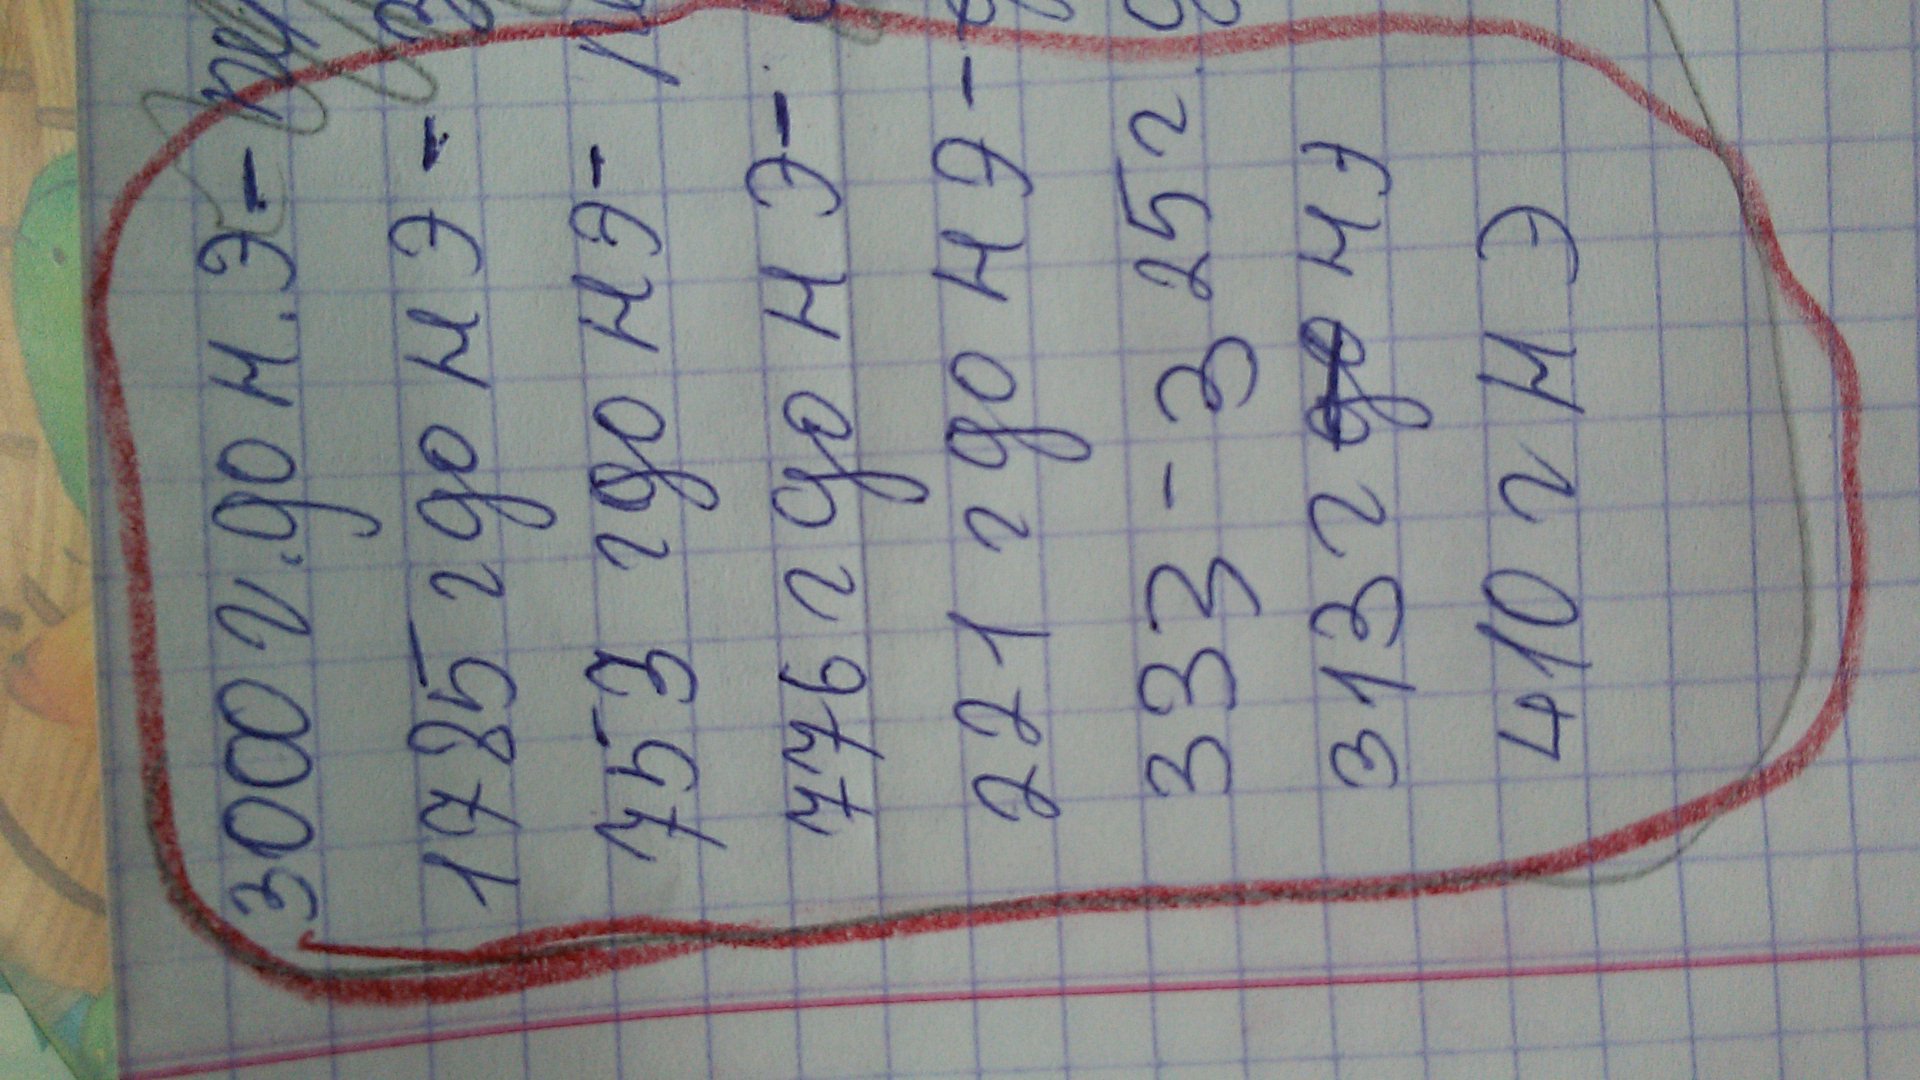 3000 г. до н.э -
1785 г до н э -
753 г до н э -
776 г до н э -
221 г до н э -
333 - 325 г
313 г н э
410 г н э